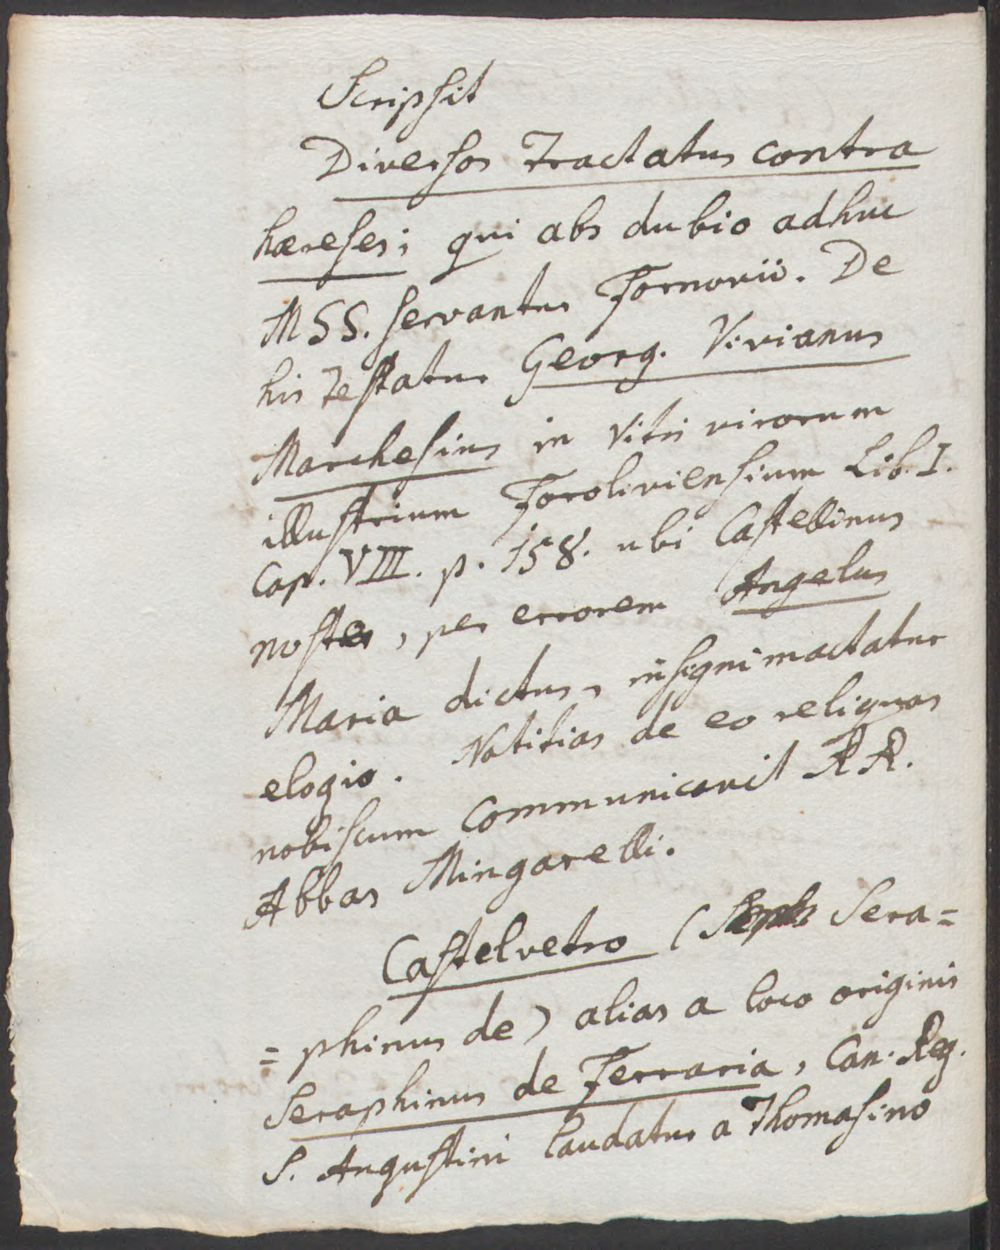 Scripsit
Diversos Tractatus contra
hæreses; qui abs dubio adhuc
MSS. servantur Fornovii. De
his testatur Georg. Vivianus
Marchesius in Vitis virorum
illustrium Foroliviensium Lib. I.
Cap. VIII. p. 158. ubi Castellinus
noster, per errorem Angelus
Maria dictus, insigni mactatur
elogio. Notitias de eo reliquas
nobiscum communicavit RR.
Abbas Mingarelli.
Castelvetro ( Sera=
=phinus de) alias a loco originis
Seraphinus de Ferraria, Can. Reg.
S. Augustini laudatur a Thomasino